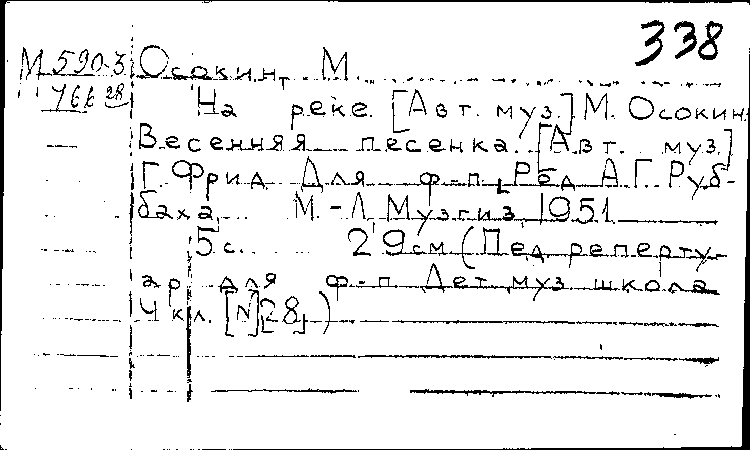 338
М 590-3 Осокин, М.
766 28 На реке. [Авт. муз.] М. Осокин.
Весенняя песенка. [Авт. муз.]
Г. Фрид Для ф-п. Ред А.Г. Руб-
баха. М.-Л Музгиз 1951
5 с. 29см (Пед реперту-
ар для ф-п Дет муз школа
4 кл. [N][28])